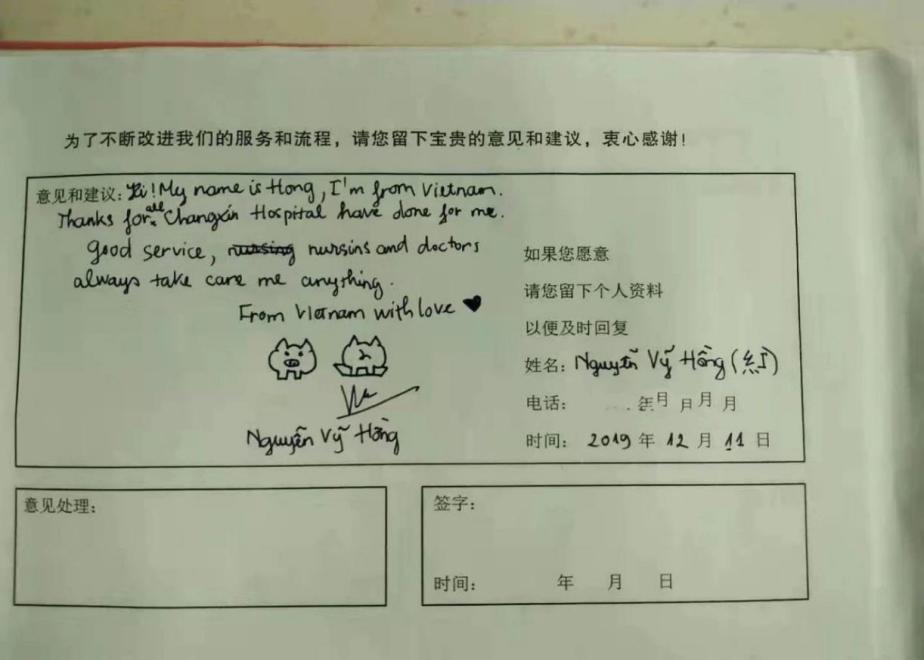 为了不断改进我们的服务和流程，请您留下宝贵的意见和建议，衷心感谢！
意见和建议：Hi! My name is Hong, I'm from Vietnam.
Thanks for all Changxin Hospital have done for me.
good service, nursing nursins and doctors
always take care me anything.
From Vietnam with love ♥
Nguyễn Vỹ Hồng
如果您愿意
请您留下个人资料
以便及时回复
姓名：Nguyễn Vỹ Hồng (紅)
电话：
时间：2019年12月11日
意见处理：
签字：
时间： 年 月 日